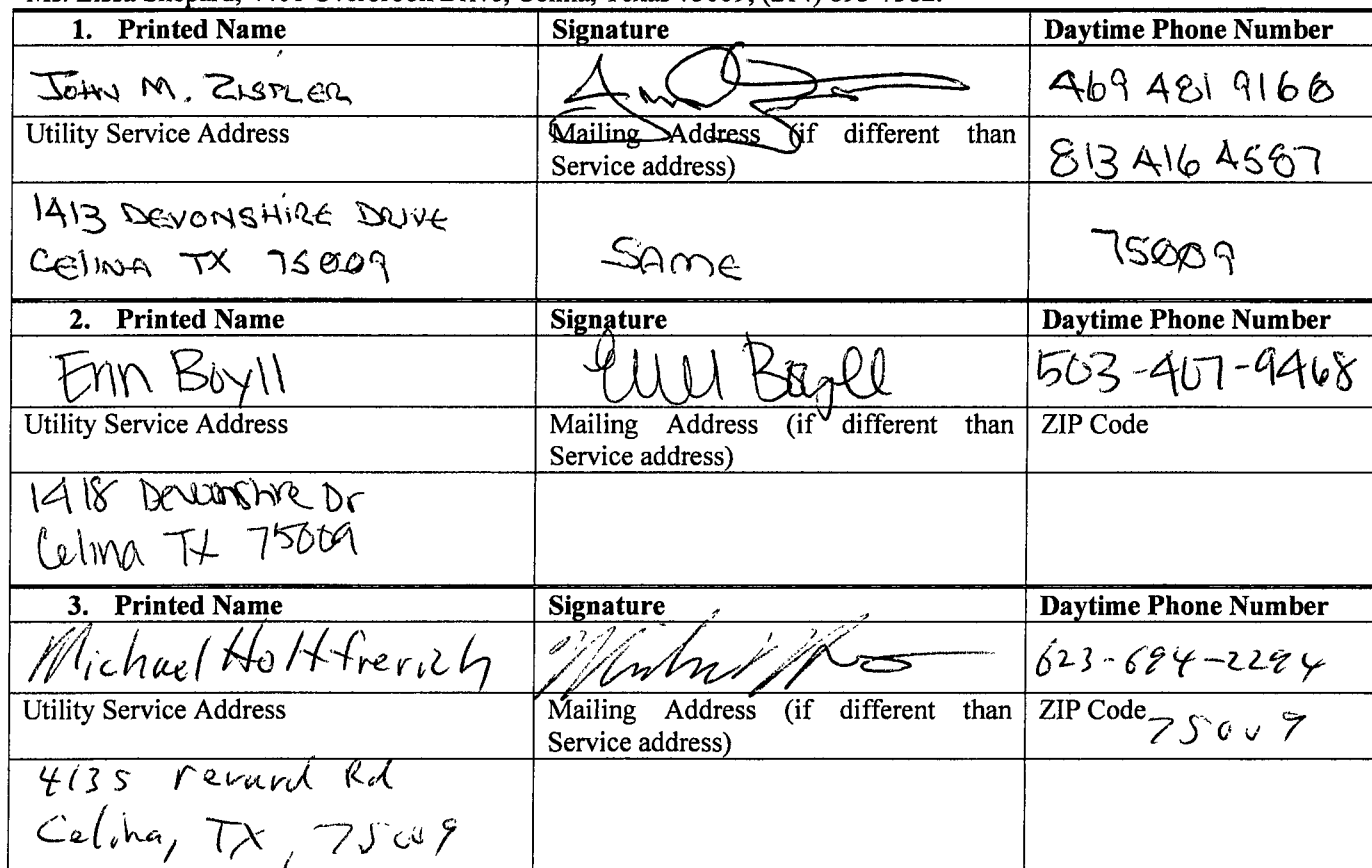 1. Printed Name Signature Daytime Phone Number
JOHN M. ZISTLER 469 481 9168
Utility Service Address Mailing Address (if different than
Service address)
813 416 4587
1413 DEVONSHIRE DRIVE
CELINA TX 75009 SAME 75009
2. Printed Name Signature Daytime Phone Number
Erin Boyll Erin Boyll 503-407-9468
Utility Service Address Mailing Address (if different than ZIP Code
Service address)
1418 Devonshire Dr
Celina TX 75009
3. Printed Name Signature Daytime Phone Number
Michael Holtfrerich 623-694-2294
Utility Service Address Mailing Address (if different than ZIP Code 75009
Service address)
Rd
Celina, TX, 75009